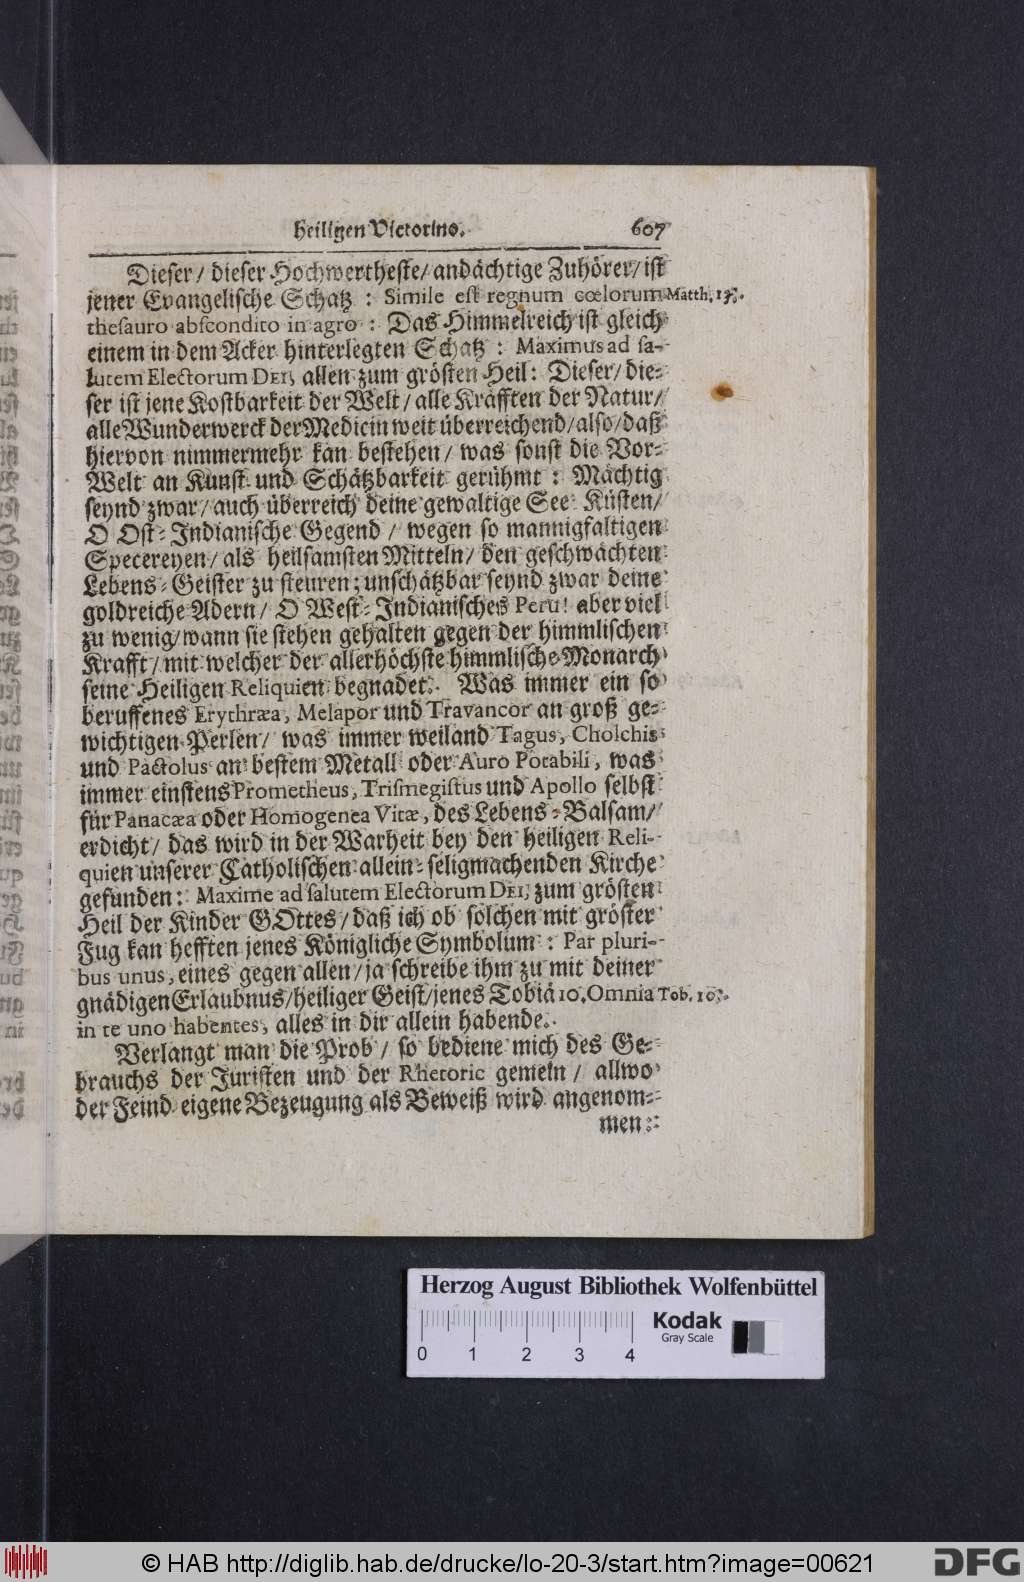 heiligen Victorino. 607
Dieser/ dieser Hochwertheste/ andächtige Zuhörer/ ist
jener Evangelische Schatz : Simile est regnum cœlorum Matth. 13.
thesauro abscondito in agro : Das Himmelreich ist gleich
einem in dem Acker hinterlegten Schatz : Maximus ad sa-
lutem Electorum DEI, allen zum grösten Heil: Dieser/ die-
ser ist jene Kostbarkeit der Welt/ alle Kräfften der Natur/
alle Wunderwerck der Medicin weit überreichend/ also/ daß
hiervon nimmermehr kan bestehen/ was sonst die Vor-
Welt an Kunst und Schätzbarkeit gerühmt : Mächtig
seynd zwar/ auch überreich deine gewaltige See-Küsten/
O Ost-Indianische Gegend / wegen so mannigfaltigen
Specereyen/ als heilsamsten Mitteln/ den geschwächten
Lebens-Geister zu steuren; unschätzbar seynd zwar deine
goldreiche Adern/ O West-Indianisches Peru! aber viel
zu wenig/ wann sie stehen gehalten gegen der himmlischen
Krafft/ mit welcher der allerhöchste himmlische Monarch
seine Heiligen Reliquien begnadet. Was immer ein so
beruffenes Erythræa, Melapor und Travancor an groß ge-
wichtigen Perlen/ was immer weiland Tagus, Cholchis
und Pactolus an bestem Metall oder Auro Potabili, was
immer einstens Prometheus, Trismegistus und Apollo selbst
für Panacæa oder Homogenea Vitæ, des Lebens-Balsam/
erdicht/ das wird in der Warheit bey den heiligen Reli-
quien unserer Catholischen allein-seligmachenden Kirche
gefunden: Maxime ad salutem Electorum DEI, zum grösten
Heil der Kinder GOttes/ daß ich ob solchen mit gröster
Fug kan hefften jenes Königliche Symbolum : Par pluri-
bus unus, eines gegen allen/ ja schreibe ihm zu mit deiner
gnädigen Erlaubnus/ heiliger Geist/ jenes Tobiä 10. Omnia Tob. 10.
in te uno habentes, alles in dir allein habende.
Verlangt man die Prob / so bediene mich des Ge-
brauchs der Juristen und der Rhetoric gemein / allwo
der Feind eigene Bezeugung als Beweiß wird angenom-
men:
Herzog August Bibliothek Wolfenbüttel
Kodak
Gray Scale
0 1 2 3 4
© HAB http://diglib.hab.de/drucke/lo-20-3/start.htm?image=00621
DFG